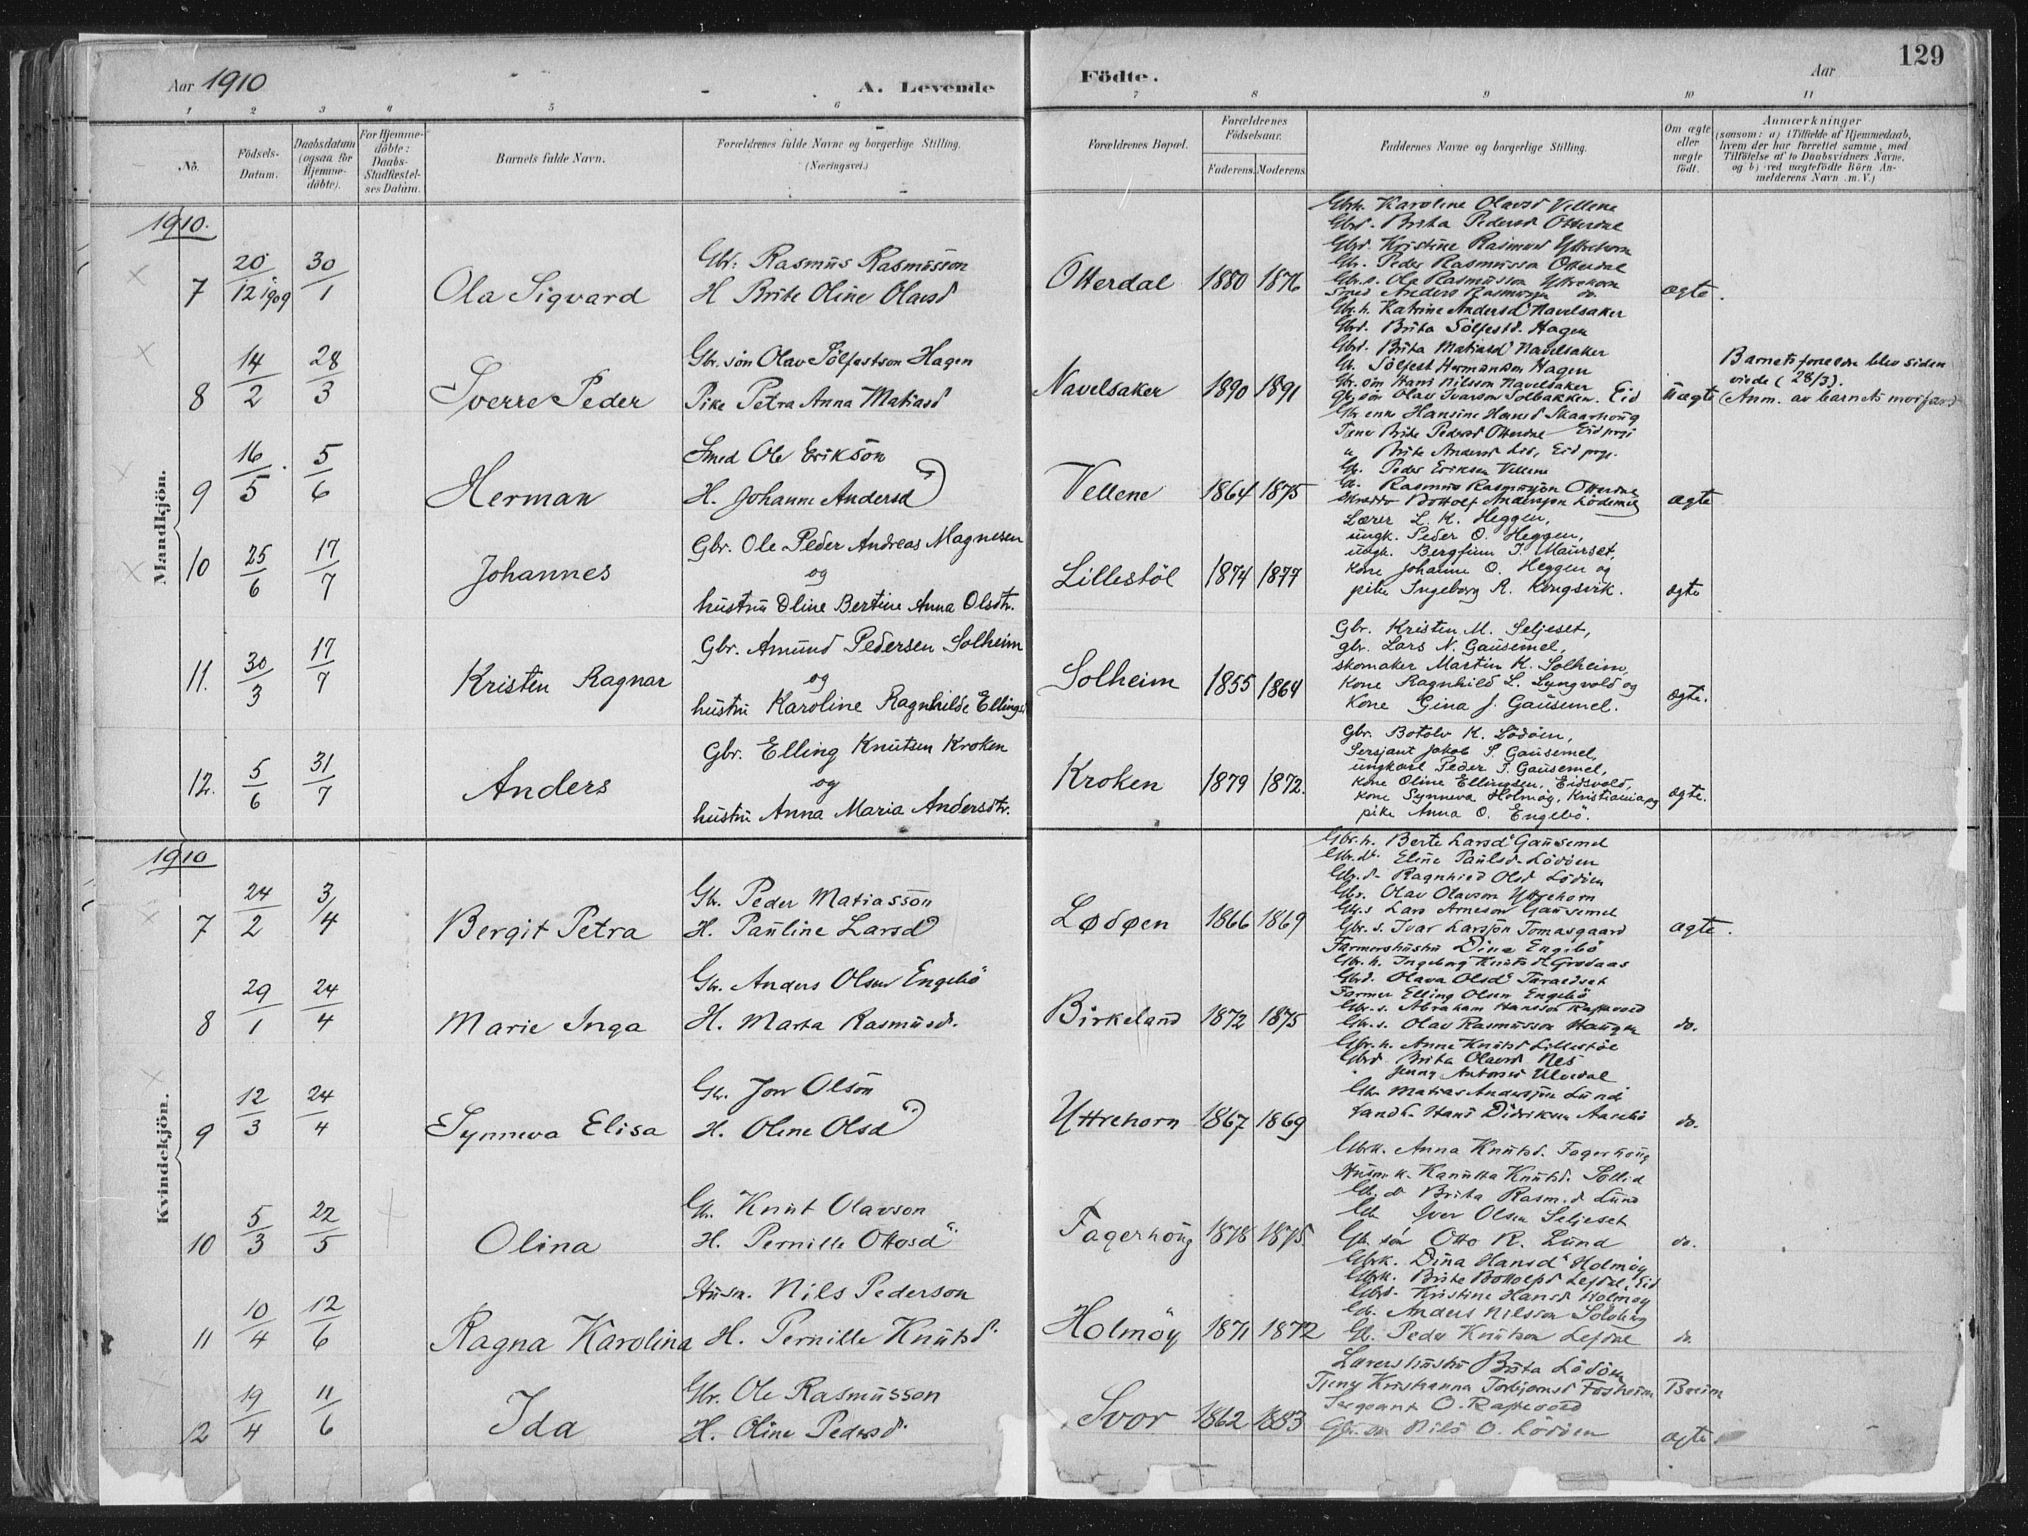 129
Aar 1910
A. Levende
Födte.
Aar
1 2 3 4 5 6 7 8 9 10 11
No.
Födsels-Datum.
Daabsdatum (ogsaa for Hjemme-döbte).
For Hjemme-döbte: Daabs-Stadfæstel-ses Datum.
Barnets fulde Navn.
Forældrenes fulde Navne og borgerlige Stilling. (Næringsvei.)
Forældrenes Bopæl.
Forældrenes Födselsaar.
Faderens. Moderens.
Faddernes Navne og borgerlige Stilling.
Om ægte eller uægte födt.
Anmærkninger
(saasom: a) i Tilfælde af Hjemmedaab,
hvem der har forrettet samme, med
Tilföielse af to Daabsvidners Navne,
og b) ved uægtefödte Börn An-
melderens Navn m. V.)
Mandkjön.
1910.
7 20/12 1909 30/1 Ola Sigvard
Gbr. Rasmus Rasmusson
H Brite Oline Olavsd
Otterdal 1880 1876
Gbrk. Karoline Olavsd Vellene
Gbrd. Brita Pedersd Otterdal
Gbrd. Kristine Rasmusd Yttrehorn
Gbr. Peder Rasmusson Otterdal
Gbr.s. Ola Rasmusson Yttrehorn
Smed Anders Rasmussn do.
ægte.
8 14/2 28/3 Sverre Peder
Gbr. sön Olav Sölfestson Hagen
Pike Petra Anna Matiasd
Navelsaker 1890 1891
Gbr. h. Katrine Andersd Navelsaker
Gbrd. Brita Sölfestd. Hagen
Gbrd. Brita Matiasd Navelsaker
Gbr. Sölfest Hermanson Hagen
Gbr. sön Hans Nilsson Navelsaker
Gbr. sön Olav Ivarson Solbakken. Eid
uægte
Barnets foreldre blev siden
viede (28/3).
(Anm. av barnets morfar)
9 16/5 5/6 Herman
Smed Ole Erikson
H. Johanne Andersd
Vellene 1864 1875
Gbr enke Hansine Hansd Skaarhoug
Tjener Brite Pedersd Otterdal Eid prgj
" Brite Andersd Lid, Eid prgj.
Gbr. Peder Eriksen Vellene
Gbr. Rasmus Rasmusson Otterdal
Skredder Bottolf Anderson Lödemel
ægte
10 25/6 17/7 Johannes
Gbr. Ole Peder Andreas Magnesen
og
hustru Oline Bertine Anna Olsdtr.
Lillestöl 1874 1877
Lærer L. K. Heggen,
ungk. Peder O. Heggen,
ungk. Bergfinn J. Maurset,
kone Johanne O. Heggen og
pike Ingeborg R. Kongsvik.
ægte
11. 30/3 17/7 Kristen Ragnar
Gbr. Amund Pedersen Solheim
og
hustru Karoline Ragnhilde Ellings
Solheim 1855 1864
Gbr. Kristen M. Seljeset,
gbr. Lars N. Gausemel,
skomaker Martin K. Solheim,
Kone Ragnhild L. Lyngvold og
Kone Gina J. Gausemel.
ægte.
12. 5/6 31/7 Anders
Gbr. Elling Knutsen Kroken
og
hustru Anna Maria Andersdtr.
Kroken 1879 1872.
Gbr. Botolv K. Lödöen,
Sersjant Jakob S. Gausemel,
ungkarl Peder J. Gausemel,
kone Oline Ellingsen, Eidsvold,
kone Synneva Holmöy, Kristiania og
pike Anna O. Engebö.
ægte.
Kvindekjön.
1910
7 24/2 3/4 Bergit Petra
Gbr. Peder Matiasson
H. Pauline Larsd
Lødøen 1866 1869
Gbr. h. Berte Larsd Gausemel
Gbr. d. Eline Paulsd. Lödöen
Gbr. d. Ragnhild Olsd Lödöen
Gbr. Olav Olavson Yttrehorn
Gbr. s Lars Arneson Gausemel
Gbr. s. Ivar Larsjon Tomasgaard
ægte.
8 29/1 24/4 Marie Inga
Gbr. Anders Olsen Engebö
H. Marta Rasmusd.
Birkeland 1872 1875
Farmershustru Dina Engebö
Gbr. h. Ingeborg Knutsd Grodaas
Gbrd. Olava Olsd Taraldset
Farmer Elling Olsen Engebö
Gbr. s. Abraham Hansson Raftevold
Gbr. s. Olav Rasmusson Haugen
do.
9 12/3 24/4 Synneva Elisa
Gbr. Jon Olson
H. Oline Olsd
Yttrehorn 1867 1869
Gbr. h. Anne Knutsd Lillestöl
Gbrd Brita Olavsd Nes
Jenny Antonsd Ulvedal
Gbr Matias Andersson Lunde
Landh. Hans Didriksen Aarebö
do.
10 5/3 22/5 Olina
Gbr. Knut Olavson
H. Pernille Ottosd
Fagerhoug 1878 1875
Gbrk. Anna Knutsd. Fagerhoug
Husm. k. Kanutta Knutsd. Sollid
Gbr. d. Brita Rasm.d Lund
Gbr Iver Olsen Seljeset
Gbr. sön Otto R. Lund
do.
11 10/4 12/6 Ragna Karolina
Husm. Nils Pederson
H. Pernille Knutsd.
Holmöy 1871 1872
Gbrk. Dina Hansd Holmöy
Gbrk. Brite Bottolfsd Lefdal, Eid
Gbrd. Kristine Hansd Holmöy
Gbr. Anders Nilsson Solvberg
Gbr. Peder Knutson Lefdal
do.
12 19/4 11/6 Ida
Gbr. Ole Rasmusson
H. Oline Pedersd.
Svor 1862 1883
Lærershustru Brita Lödöen
Tjeny Kristianna Torbjørnsd Fosheim Breim
Sergeant O. Raftevold
Gbr. sn Nils O. Lödöen
ægte.